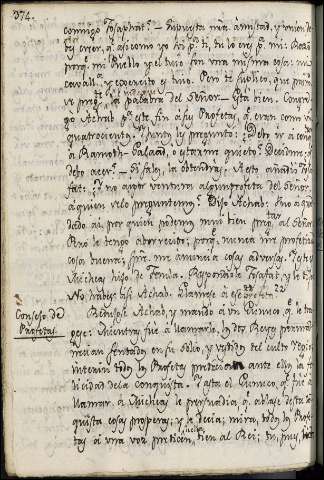 374.
conmigo Josaphat? – Supuesta nra. amistad, y union de
by creer, q. asi como yo soy p.ª ti, tu lo eres p.ª mi: Reino
porq. mi Pueblo y el tuyo son una misma cosa: mi
cavall.ª y exercito es tuyo. Pero te suplico, que
la palabra del Señor. – Está bien. Congre-
gó Achab p.ª este fin á sus Profetas, q. eran como
quatrocientos, y juntos les preguntó: Debo ir á
á Ramoth-Galaad, ó estarme quieto? Decidme q.
debo acer? – Si sales, la obtendrás. A esto añadió Josa-
fat: no ay por ventura algun profeta del Señor,
á quien se lo preguntemos? Dijo Achab: Uno á que-
dado aí, por quien podemos mui bien preg.tar al Señor.
Pero le tengo aborrecido, porq. nunca me profetiza
cosa buena; me anuncia cosas adversas. Este es
Micheas hijo de Jemla. Respondiole Josafat, y le dijo:
No hableis asi Achab. Llamese á ese profeta.
Consejo de
Profetas
Achab, y mandó á un Eunuco q. le tra-
gese: Mientras fué á llamarlo, los dos Reyes perma-
necian sentados en su Solio, y vestidos del culto regio:
todos los Profetas ante ellos la fe-
licidad de la conquista. Hasta el Eunuco, q. fué á
llamar á Micheas le persuadia q. ablase de esta con-
quista cosas prosperas; y le decia: mira, todos los Profe-
tas á una voz predicen bien al Rei: tu, pues,